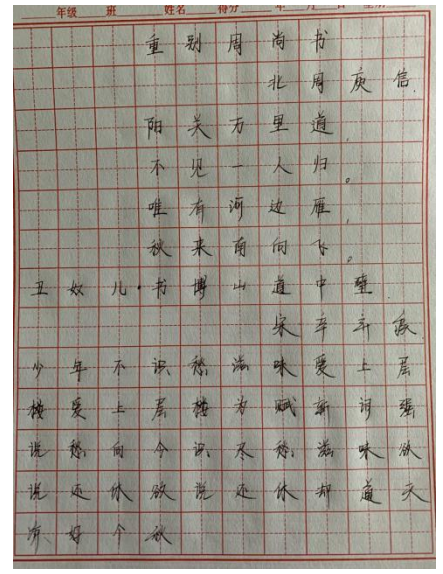 年级 班 姓名 得分 年 月 日 星期
重别周尚书
北周庾信
阳关万里道，
不见一人归。
唯有河边雁，
秋来南向飞。
丑奴儿·书博山道中壁
宋辛弃疾
少年不识愁滋味爱上层
楼爱上层楼为赋新词强
说愁向今识尽愁滋味欲
说还休欲说还休却道天
凉好个秋